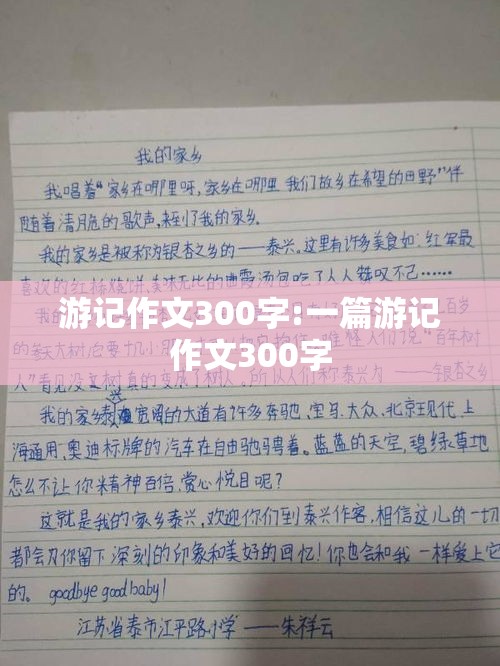 我的家乡
我唱着“家乡在哪里呀,家乡在哪里 我们故乡在希望的田野”伴
随着清脆的歌声,来到了我的家乡.
我的家乡是被称为银杏之乡的——泰兴。这里有许多美食如:红军最
喜欢的红 烧饼,美味无比的曲霞汤包吃了人人赞叹不已……
游记作文300字:一篇游记
作文300字
百岁
的
百年树
人”
——银杏之乡
我的家乡泰 宽阔的大道有许多奔驰、宝马.大众、北京现代、上
海通用、奥迪标牌的汽车在自由驰骋着。蓝蓝的天空,碧绿草地
怎么不让你精神百倍、赏心悦目呢?
这就是我的家乡泰兴,欢迎你们到泰兴作客,相信这儿的一切
都会为你留下深刻的印象和美好的回忆!你也会和我一样爱上它
的。 goodbye good baby!
江苏省泰市江平路小学 ——朱祥云